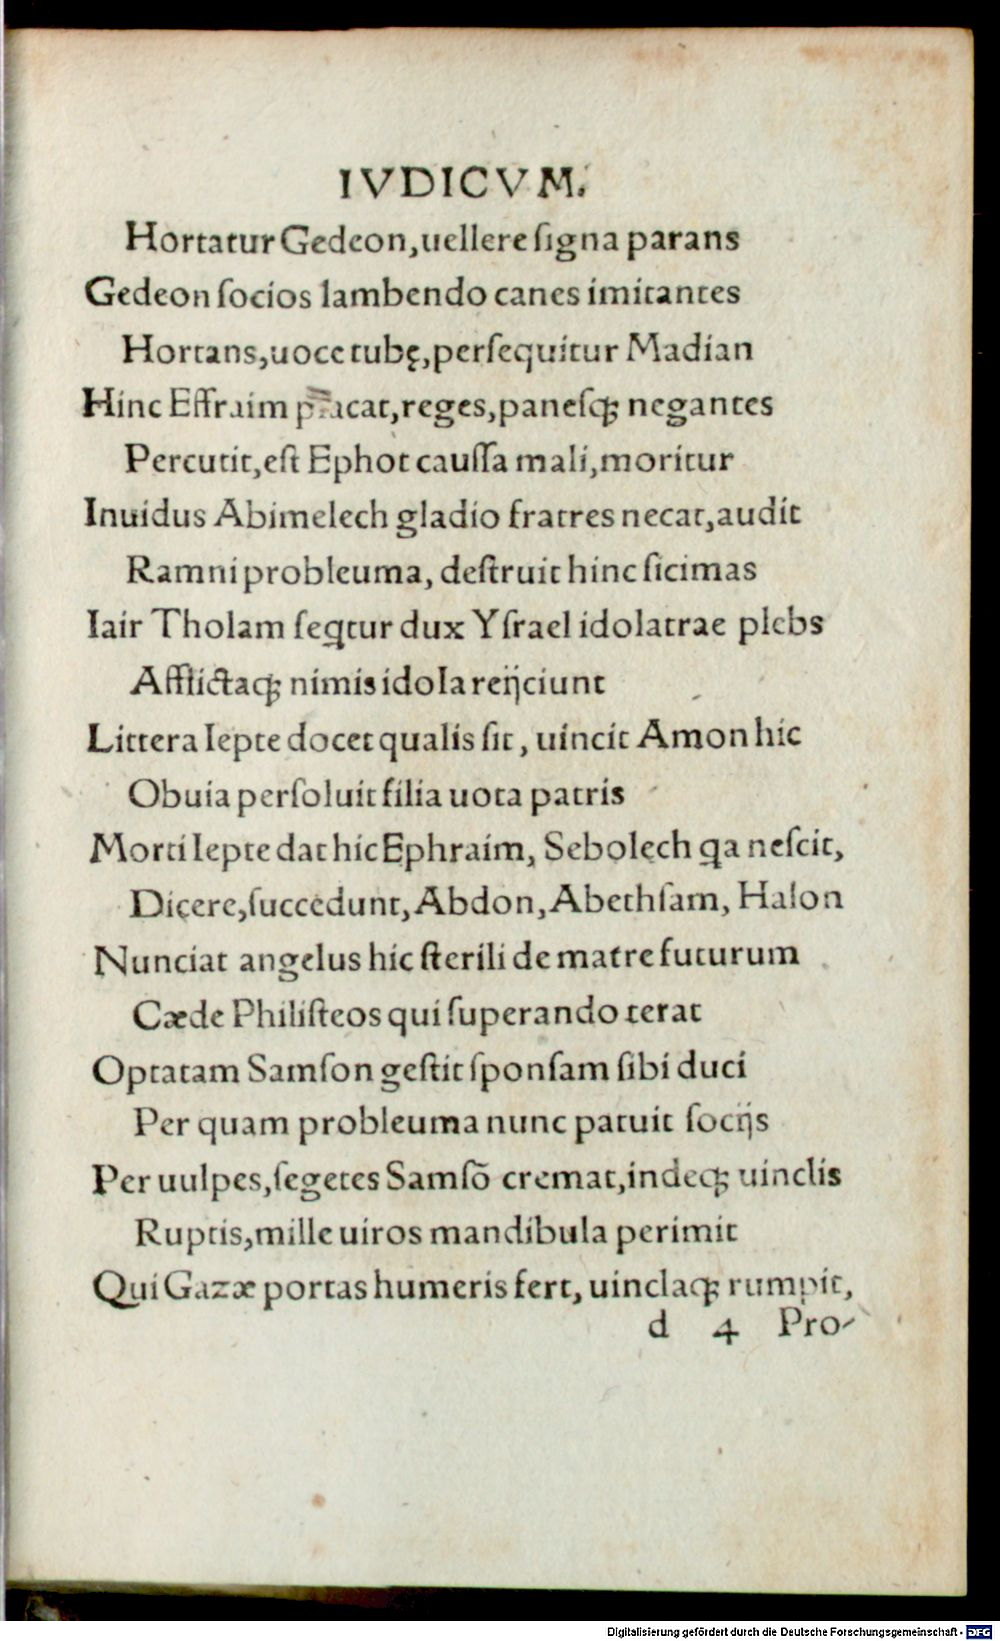 IVDICVM.
Hortatur Gedeon,uellere ſigna parans
Gedeon ſocios lambendo canes imitantes
Hortans,uoce tubę,perſequitur Madian
Hinc Effraim placat,reges,paneſqꝫ negantes
Percutit,eſt Ephot cauſſa mali,moritur
Inuidus Abimelech gladio fratres necat,audit
Ramni probleuma, deſtruit hinc ſicimas
Iair Tholam ſeqtur dux Yſrael idolatrae plebs
Afflictaqꝫ nimis idola reijciunt
Littera Iepte docet qualis ſit, uincit Amon hic
Obuia perſoluit filia uota patris
Morti Iepte dat hic Ephraim, Sebolech qa neſcit,
Dicere,ſuccedunt,Abdon,Abethſam, Halon
Nunciat angelus hic ſterili de matre futurum
Cæde Philiſteos qui ſuperando terat
Optatam Samſon geſtit ſponſam ſibi duci
Per quam probleuma nunc patuit ſocijs
Per uulpes,ſegetes Samſō cremat,indeqꝫ uinclis
Ruptis,mille uiros mandibula perimit
Qui Gazæ portas humeris fert, uinclaqꝫ rumpit,
d 4 Pro-
Digitalisierung gefördert durch die Deutsche Forschungsgemeinschaft - DFG